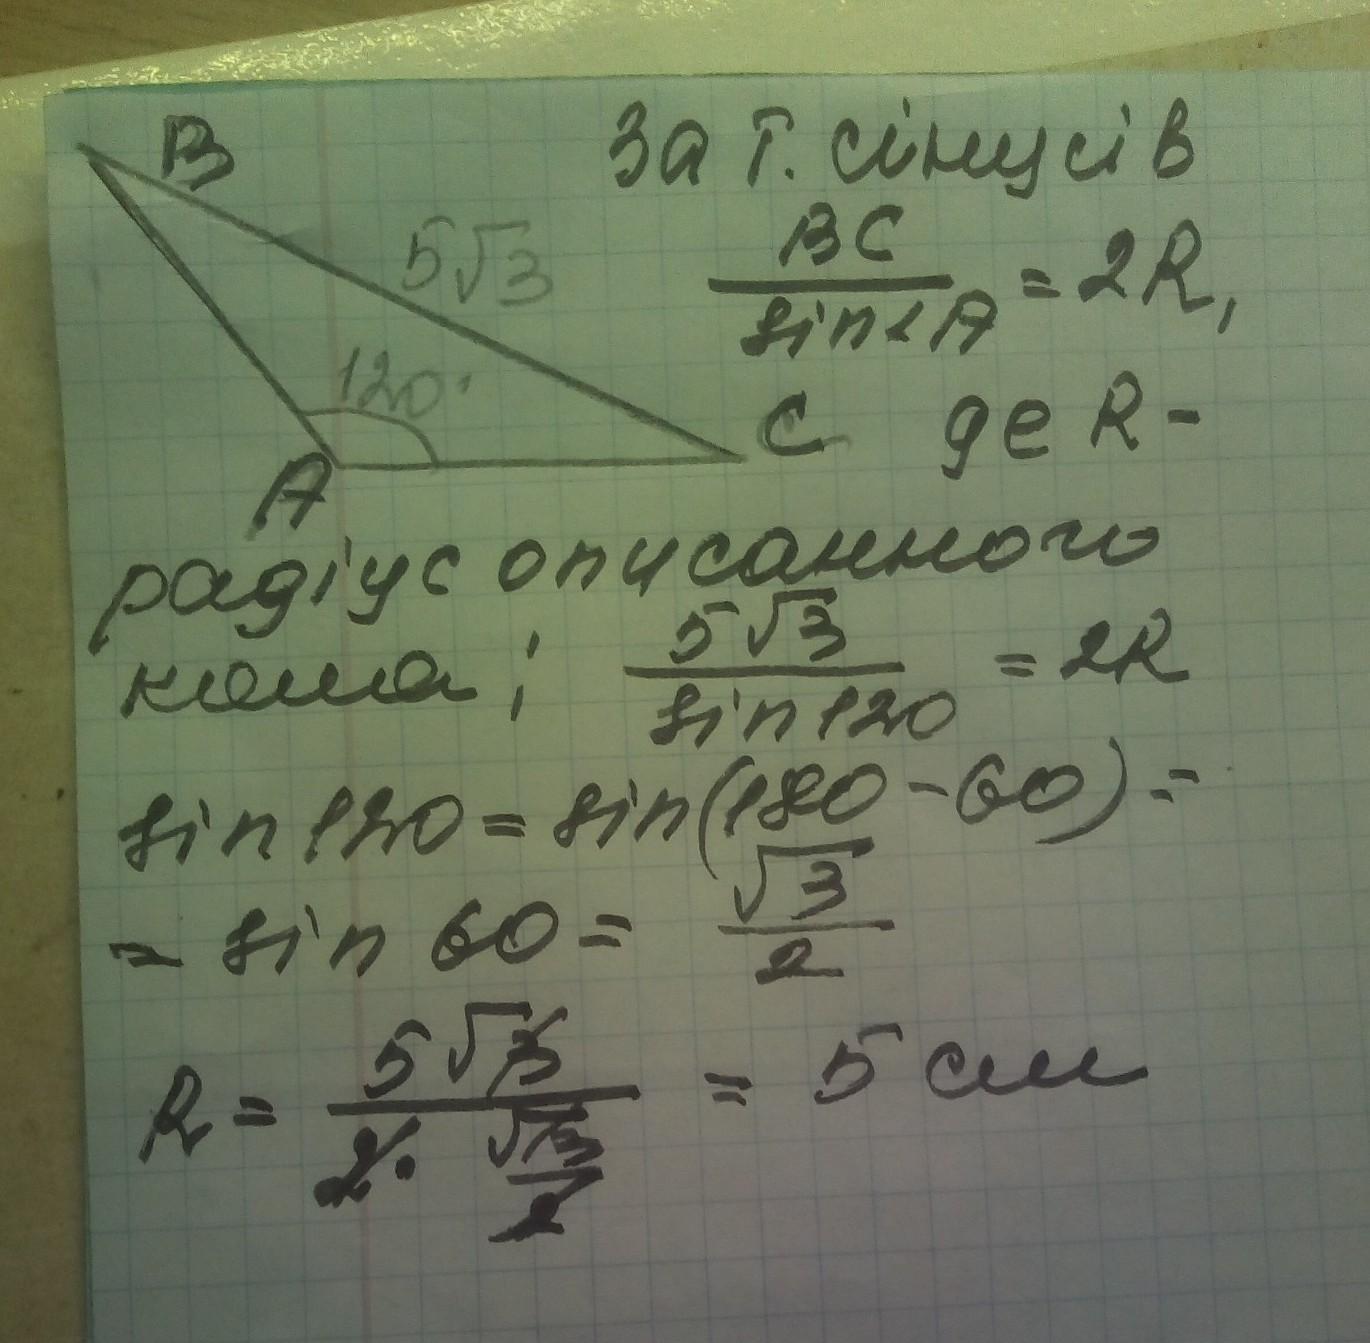 B
За т. сінусів
5√3
BC/sin∠A = 2R,
120°
C
де R -
A
радіус описанного
кола; 5√3/sin120 = 2R
sin120 = sin(180-60) =
= sin 60 = √3/2
R = 5√3/(2·√3/2) = 5 см